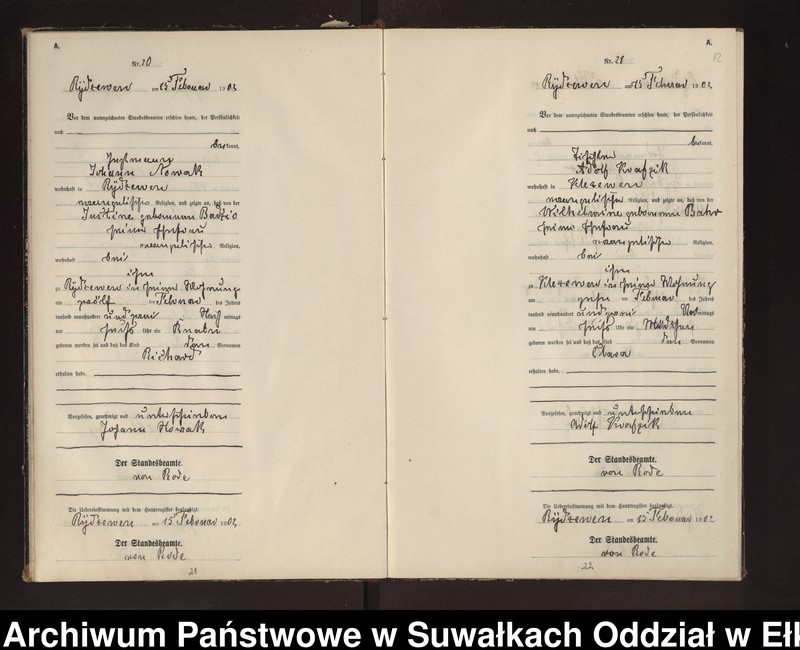 A.
Nr. 20
Rydzewen am 15 Februar 1902.
Vor dem unterzeichneten Standesbeamten erschien heute, der Persönlichkeit
nach
bekannt,
Johann Nowak
wohnhaft in Rydzewen
evangelischer Religion, und zeigte an, daß von der
Justine geborenen
seiner Ehefrau
evangelischer Religion,
wohnhaft bei
ihm
zu Rydzewen in seiner Wohnung
am zwölften Februar des Jahres
tausend neunhundert und zwei Nachmittags
um fünf Uhr ein Knabe
geboren worden sei und daß das Kind den Vornamen
Richard
erhalten habe.
Vorgelesen, genehmigt und unterschrieben
Johann Nowak
Der Standesbeamte.
von Rode
Die Uebereinstimmung mit dem Hauptregister beglaubigt.
Rydzewen am 15 Februar 1902.
Der Standesbeamte.
von Rode
21
A.
12
Nr. 21
Rydzewen am 15 Februar 1902.
Vor dem unterzeichneten Standesbeamten erschien heute, der Persönlichkeit
nach
bekannt,
Adolf
wohnhaft in
evangelischer Religion, und zeigte an, daß von der
Wilhelmine geborenen
seiner Ehefrau
evangelischer Religion,
wohnhaft bei
ihm
zu in seiner Wohnung
am zehnten Februar des Jahres
tausend neunhundert und zwei mittags
um fünf Uhr ein Mädchen
geboren worden sei und daß das Kind den Vornamen
Clara
erhalten habe.
Vorgelesen, genehmigt und unterschrieben
Adolf
Der Standesbeamte.
von Rode
Die Uebereinstimmung mit dem Hauptregister beglaubigt.
Rydzewen am 15 Februar 1902
Der Standesbeamte.
von Rode
22
Archiwum Państwowe w Suwałkach Oddział w Ełk